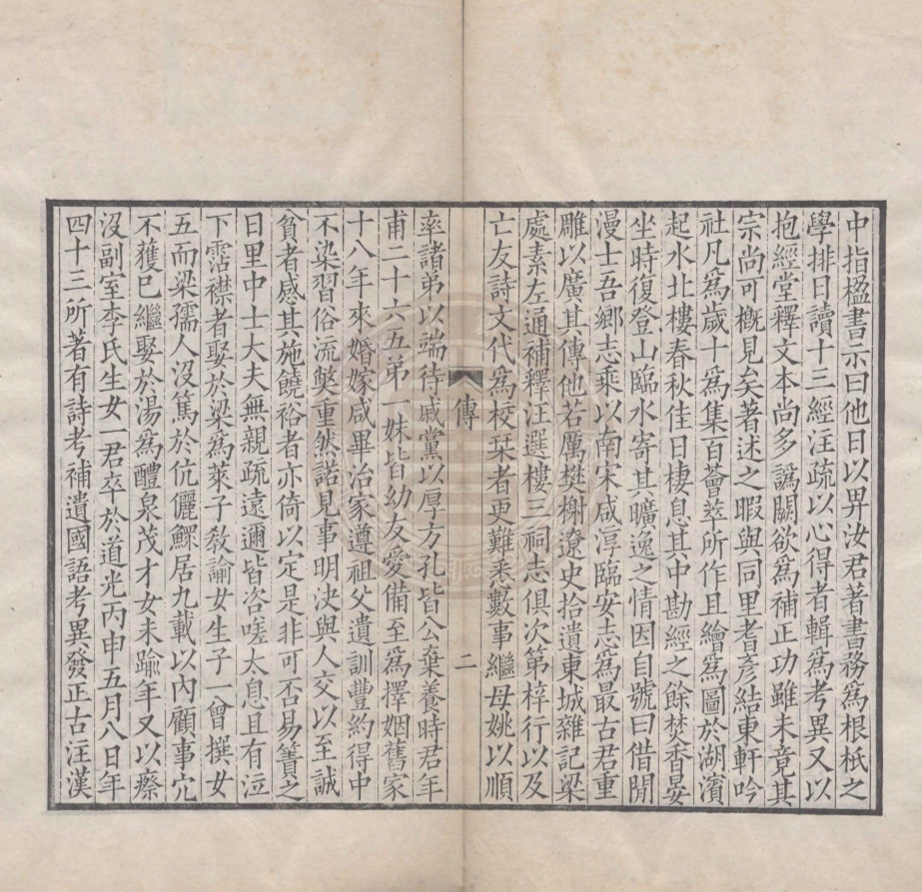 中指楹書示曰他日以畀汝君著書務爲根柢之
學排日讀十三經汪疏以心得者輯爲考異又以
抱經堂釋文本尚多譌闕欲爲補正功雖未竟其
宗尚可概見矣著述之暇與同里耆彥結東軒吟
社凡爲歲十爲集百薈萃所作且繪爲圖於湖濱
起水北樓春秋佳日棲息其中勘經之餘焚香晏
坐時復登山臨水寄其曠逸之情因自號曰借閒
漫士吾鄉志乘以南宋咸淳臨安志爲最古君重
雕以廣其傳他若厲樊榭遼史拾遺東城雜記梁
處素左通補釋汪選樓三祠志俱次第梓行以及
亡友詩文代爲校栞者更難悉數事繼母姚以順
傳
二
率諸弟以端待戚黨以厚方孔皆公棄養時君年
甫二十六五弟一妹皆幼友愛備至爲擇姻舊家
十八年來婚嫁咸畢治家遵祖父遺訓豐約得中
不染習俗流弊重然諾見事明決與人交以至誠
貧者感其施饒裕者亦倚以定是非可否易簀之
日里中士大夫無親疏遠邇皆咨嗟太息且有泣
下霑襟者娶於梁爲萊子敎諭女生子一曾撰女
五而梁孺人沒篤於伉儷鰥居九載以內顧事宂
不獲已繼娶於湯爲醴泉茂才女未踰年又以瘵
沒副室李氏生女一君卒於道光丙申五月八日年
四十三所著有詩考補遺國語考異發正古汪漢